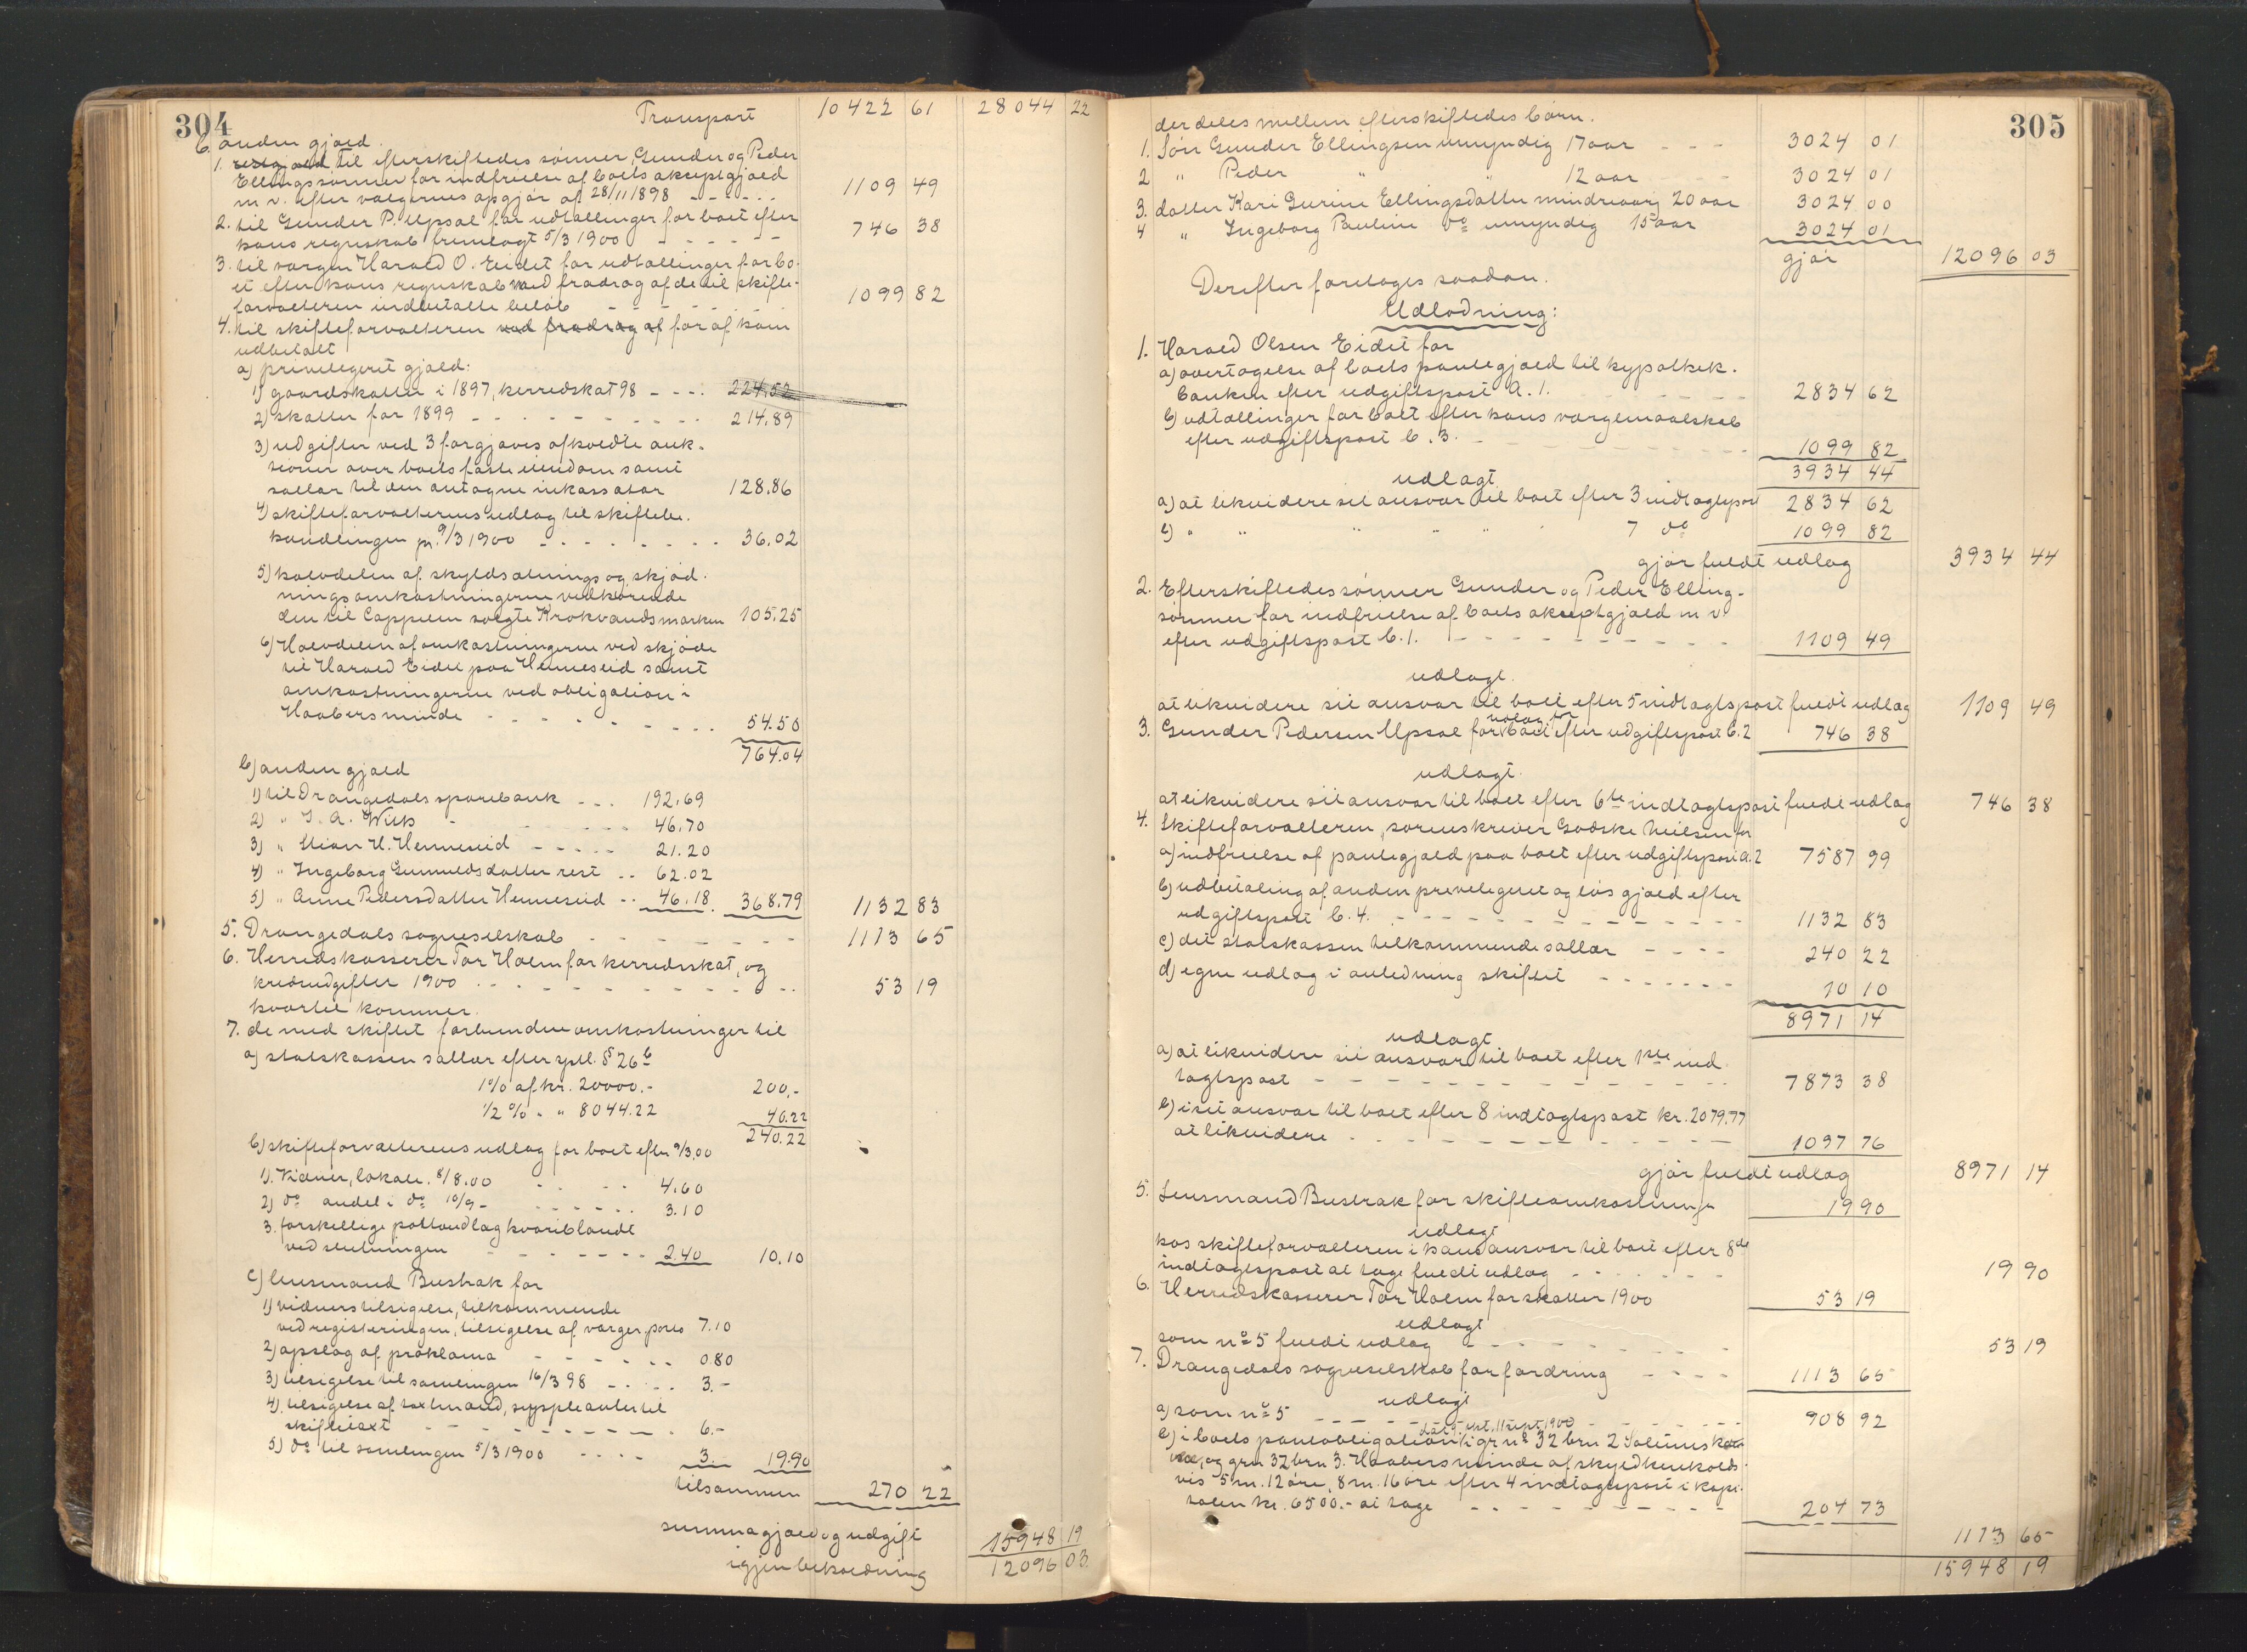 304
Transport 10422 61 28044 22
b. anden gjæld.
1. restgjæld til efterskiftedes sønner, Gunder og Peder
Ellingssønner for indfrielse af boets akseptgjæld
m. v. efter vægernes opgjør af 28/11 1898 - - - - - 1109 49
2. til Gunder P. Upsal for udtællinger for boet efter
hans regnskab fremlagt 5/3 1900 - - - - - 746 38
3. til vergen Harald O. Eidet for udtællinger for bo-
et efter hans regnskab med fradrag af de til skifte-
forvalteren indbetalte beløb - - - - - 1099 82
4. til skifteforvalteren ved fradrag af for af ham
udbetalt
a) privelegeret gjæld:
1) gaardskatter i 1897, herredskat 98 - - - - 224.52
2) skatter for 1899 - - - - - - - - 214.89
3) udgifter ved 3 forgjæves afholdte auk-
sioner over boets faste eiendom samt
sallær til den antagne inkassator 128.86
4) skifteforvalterens udlag til skiftebe-
handlingen pr. 9/3 1900 - - - - - - - - 36.02
5) halvdelen af skyldsætnings og skjød-
ningsomkostningerne vedkørende
den til Cappelen solgte Krokvandsmarken 105.25
6) Halvdelen af omkostningerne ved skjøde
til Harald Eidet paa Henneseid samt
omkostningerne ved obligation i
Haabersminde - - - - - - - - 54.50
764.04
b) anden gjæld
1) til Drangedals sparebank - - - 192.69
2) " J. A. Wiks - - - - - 46.70
3) " Stian H. Henneseid - - - - - 21.20
4) " Ingeborg Gunnuldsdatter rest - - 62.02
5) " Anne Pedersdatter Henneseid - - 46.18 368.79 1132 83
5. Drangedals sogneselskab - - - - - - - 1113 65
6. Herredskasserer Tor Holm for herredsskat, og
kredsudgifter 1900 - - - - - - - - - - 53 19
hvortil kommer.
7. de med skiftet forbundne omkostninger til
a) statskassen sallær efter sptl. § 26 b
1% af kr. 20000.- 200.-
1/2 % " " 8044.22 40.22
240.22
b) skifteforvalterens udlag for boet efter 9/3.00
1). Vidner, lokale. 8/8.00 - - - - 4.60
2) do andel i do 10/9 - - - - - - - 3.10
3. forskellige portoudlag hvoriblandt
ved slutningen - - - - - - 2.40 10.10
c) lensmand Bustrak for
1) vidners tilsigelse, tilkommende
ved registeringen, tilsigelse af værger, porto 7.10
2) opslag af proklama - - - - - - 0.80
3) tilsigelse til samlingen 16/3 98 - - - - - 3.-
4) tilsigelse af taxtmænd, suppleanter til
skiftetaxt - - - - - - - - - 6.-
5) do til samlingen 5/3 1900 - - - - 3.- 19.90
tilsammen 270 22
summa gjæld og udgift 15948 19
igjen beholdning 12096 03
305
der deles mellem efterskiftedes børn.
1. Søn Gunder Ellingsen umyndig 17 aar - - - 3024 01
2 " Peder " " 12 aar - - 3024 01
3. datter Kari Gurine Ellingsdatter mindreaarig 20 aar 3024 00
4 " Ingeborg Pauline do umyndig 15 aar 3024 01
gjør 12096 03
Derefter foretages saadan.
Udlodning:
1. Harald Olsen Eidet for
a) overtagelse af boets pantegjæld til hypothek-
banken efter udgiftspost A. 1. - - - - - 2834 62
b) udtællinger for boet efter hans vergemaalskab
efter udgiftspost b. 3. - - - - - - - - - 1099 82
3934 44
udlagt
a) at likvidere sit ansvar til boet efter 3 indtægtspost 2834 62
b) " " " " " 7 do 1099 82
gjør fuldt udlag 3934 44
2. Efterskiftedes sønner Gunder og Peder Elling-
sønner for indfrielse af boets akseptgjæld m v
efter udgiftspost b. 1. - - - - - - - - - - 1109 49
udlagt.
at likvidere sit ansvar til boet efter 5 indtægtspost fuldt udlag 1109 49
3. Gunder Pedersen Upsal for udlæg for boet efter udgiftspost b. 2 746 38
udlagt.
at likvidere sit ansvar til boet efter 6te indtægtspost fuldt udlag 746 38
4. Skifteforvalteren, sorenskriver Godske Nielsen for
a) indfrielse af pantegjæld paa boet efter udgiftspost A. 2 7587 99
b) udbetaling af anden privelegeret og løs gjæld efter
udgiftspost b. 4. - - - - - - - - - - - 1132 83
c) det statskassen tilkommende sallær - - - - 240 22
d) egne udlag i anledning skiftet - - - - - - - 10 10
8971 14
udlagt
a) at likvidere sit ansvar til boet efter 1ste ind-
tægtspost - - - - - - - - - - - - - 7873 38
b) i sit ansvar til boet efter 8 indtægtspost kr. 2079.77
at likvidere - - - - - - - - - - - 1097 76
gjør fuldt udlag 8971 14
5. Lensmand Bustrak for skifteomkostninger 19 90
udlagt
hos skifteforvalteren i hans ansvar til boet efter 8de
indtægtspost at tage fuldt udlag - - - - - - - 19 90
6. Herredskasserer Tor Holm for skatter 1900 53 19
udlagt
som no 5 fuldt udlag - - - - - - - - - 53 19
7. Drangedals sogneselskab for fordring - - - - 1113 65
udlagt
a) som no 5 - - - - - - - - - - - 908 92
b) i boets pantobligation dat. 5 sept. 11 sept. 1900 i gr no 32 brn 2
og grn 32 brn 3. Haabersminde af skyld henholds-
vis 5 m. 12 øre, 8 m. 16 øre efter 4 indtægtspost i kapi-
talen kr. 6500.- at tage - - - - - - - - 204 73
1113 65
15948 19